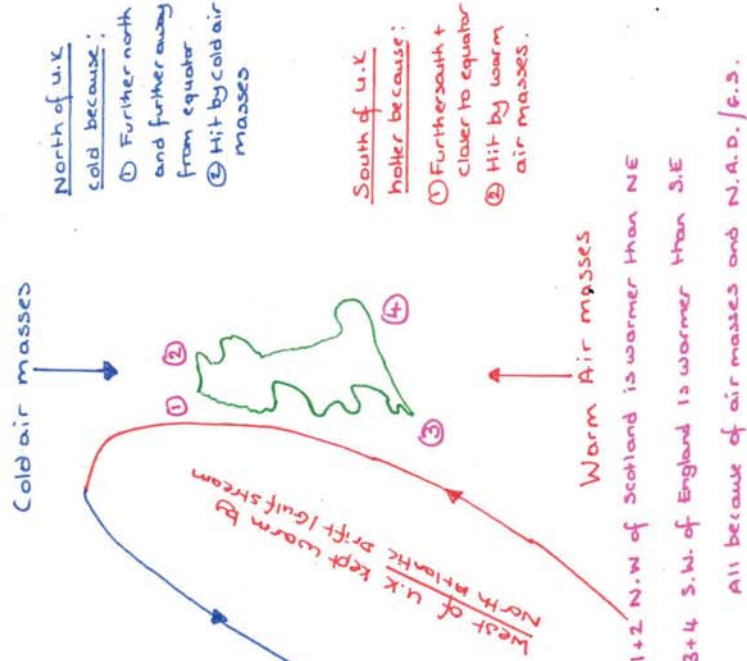 Cold air masses
North of U.K
cold because:
① Further north
and further away
from equator
② Hit by cold air
masses
① ②
③ ④
West of U.K kept warm by
North Atlantic Drift / Gulf stream
South of U.K
hotter because:
① Further south +
closer to equator
② Hit by warm
air masses.
Warm Air masses
1+2 N.W of Scotland is warmer than NE
3+4 S.W. of England is warmer than S.E
All because of air masses and N.A.D. / G.S.